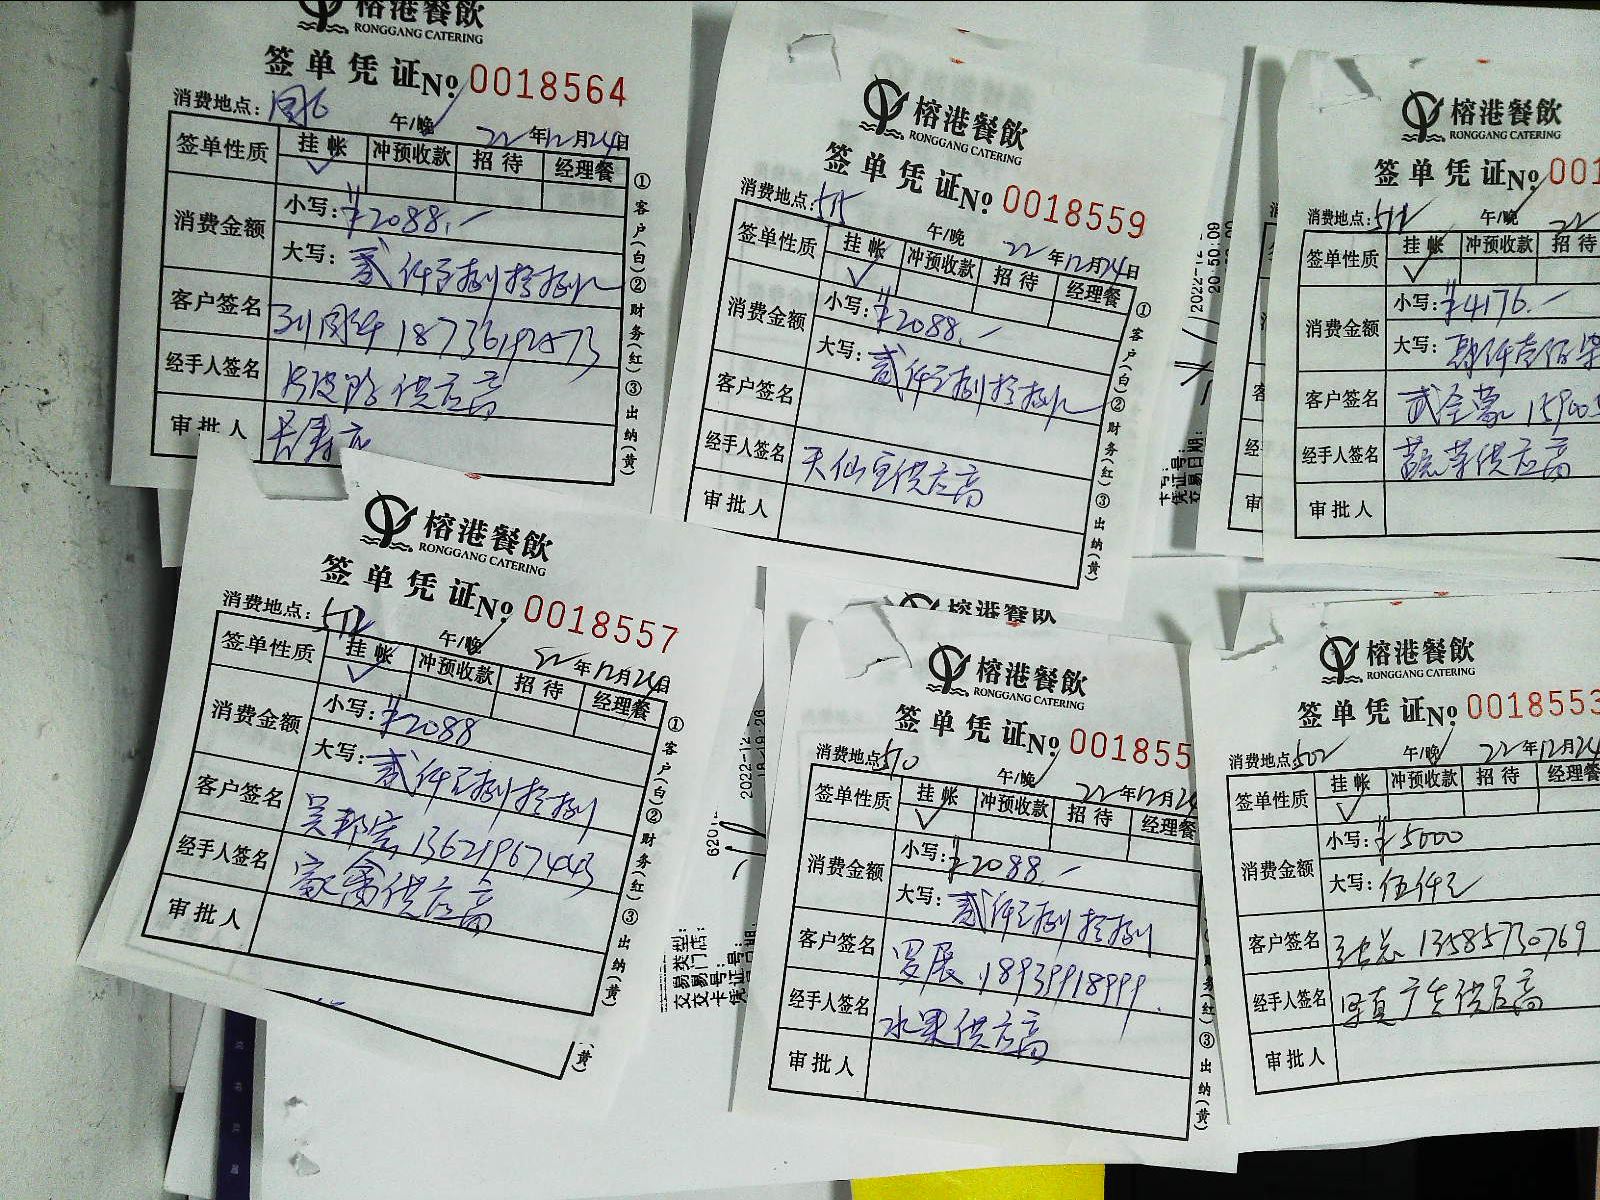 榕港餐飲
RONGGANG CATERING
签单凭证 No 0018564
消费地点:
午/晚 22年12月24日
签单性质 挂帐 冲预收款 招待 经理餐
消费金额 小写: ¥2088.-
大写: 贰仟零捌拾捌
客户签名 18736192573
经手人签名 供应商
审批人
①客户(白)②财务(红)③出纳(黄)
榕港餐飲
RONGGANG CATERING
签单凭证 No 0018559
消费地点: 515
午/晚 22年12月24日
签单性质 挂帐 冲预收款 招待 经理餐
消费金额 小写: ¥2088.-
大写: 贰仟零捌拾捌
客户签名
经手人签名 天仙豆供应商
审批人
①客户(白)②财务(红)③出纳(黄)
2022-12-
20:50:09
卡号:
凭证号:
交易日期:
榕港餐飲
RONGGANG CATERING
签单凭证 No 001
消费地点: 512 午/晚 22
签单性质 挂帐 冲预收款 招待
消费金额 小写: ¥4176.-
大写: 肆仟壹佰柒
客户签名 武全蒙 15900
经手人签名 蔬菜供应商
审批人
榕港餐飲
RONGGANG CATERING
签单凭证 No 0018557
消费地点: 512
午/晚 22年12月24日
签单性质 挂帐 冲预收款 招待 经理餐
消费金额 小写: ¥2088
大写: 贰仟零捌拾捌
客户签名 吴邦宏 13621967443
经手人签名 家禽供应商
审批人
①客户(白)②财务(红)③出纳(黄)
(黄)
2022-12
6201
交易类型:
交易门店:
卡号:
凭证号:
榕港餐飲
榕港餐飲
RONGGANG CATERING
签单凭证 No 001855
消费地点: 510
午/晚 22年12月24
签单性质 挂帐 冲预收款 招待 经理餐
消费金额 小写: ¥2088.-
大写: 贰仟零捌拾捌
客户签名 罗展 18939918999
经手人签名 水果供应商
审批人
③出纳(黄)
榕港餐飲
RONGGANG CATERING
签单凭证 No 0018553
消费地点: 502 午/晚 22年12月24
签单性质 挂帐 冲预收款 招待 经理餐
消费金额 小写: ¥5000
大写: 伍仟元
客户签名 13585730769
经手人签名 广告供应商
审批人